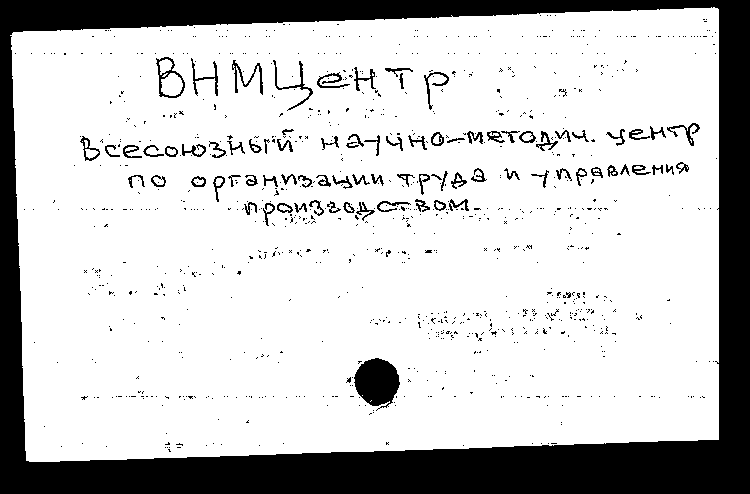 ВНМЦентр
Всесоюзный научно-методич. центр
по организации труда и управления
производством.